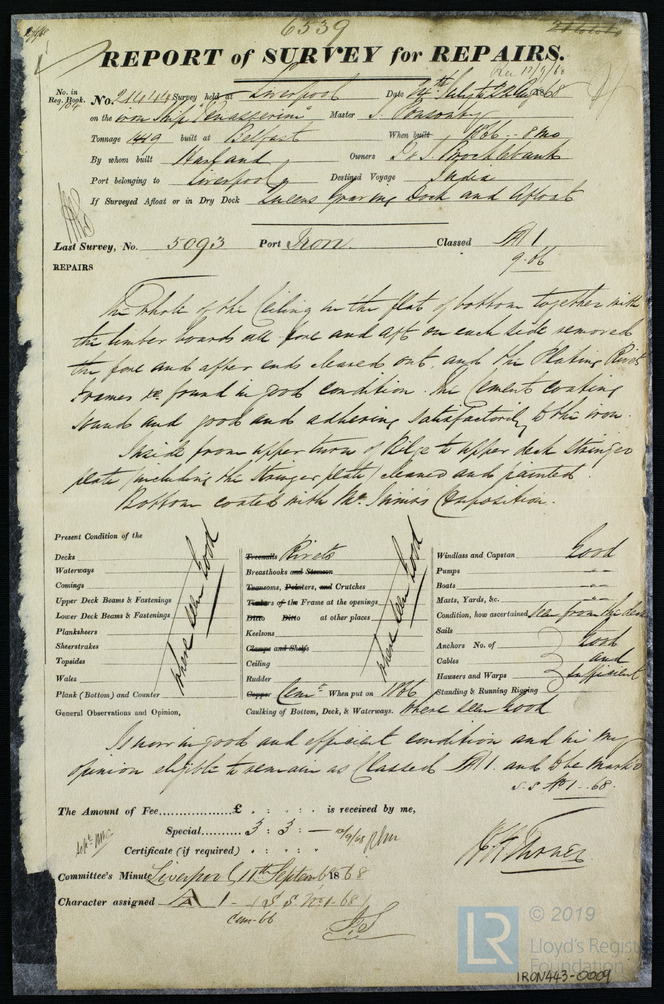 6539
REPORT of SURVEY for REPAIRS.
No. in Reg. Book. No. Survey held at Liverpool Date 1868
on the iron Ship "Tenasserim" Master Ponsonby
Tonnage 1419 built at Belfast When built 1866 - 8 mo
By whom built Harland Owners T & J Brocklebank
Port belonging to Liverpool Destined Voyage India
If Surveyed Afloat or in Dry Dock Queens Graving Dock and Afloat
Last Survey, No. 5093 Port Iron Classed A 1
9.66
REPAIRS
The whole of the Ceiling in the flat of bottom together with
the limber boards all fore and aft on each side removed
the fore and after ends cleared out, and the Plating Rivets
Frames &c found in good condition. The Cement coating
sound and good and adhering satisfactorily to the iron.
Inside from upper turn of Bilge to upper deck Stringer
plate (including the Stringer plate) cleaned and painted.
Bottom coated with Mc Innes Composition.
Present Condition of the
Decks
Waterways
Comings
Upper Deck Beams & Fastenings
Lower Deck Beams & Fastenings
Planksheers
Sheerstrakes
Topsides
Wales
Plank (Bottom) and Counter
where seen Good
Treenails Rivets
Breasthooks and Stemson
Transoms, Pointers, and Crutches
Timbers of the Frame at the openings
Ditto Ditto at other places
Keelsons
Clamps and Shelfs
Ceiling
Rudder
Copper Cemt. When put on 1866
where seen Good
Windlass and Capstan Good
Pumps "
Boats "
Masts, Yards, &c. "
Condition, how ascertained Seen from the deck
Sails
Anchors No. of Good
Cables and
Hausers and Warps sufficient
Standing & Running Rigging
General Observations and Opinion, Caulking of Bottom, Deck, & Waterways. Where seen Good
Is now in good and efficient condition and in my
opinion eligible to remain as Classed A 1. and to be marked
S.S. No 1 - 68.
The Amount of Fee £ : : is received by me,
Special 3 : 3 : —
Certificate (if required) : :
Committee's Minute Liverpool 11th September 1868
Character assigned A 1 - (S.S. No 1-68)
Cem-66
© 2019
LR
Lloyd's Regist
Foundation
IRON443-0009